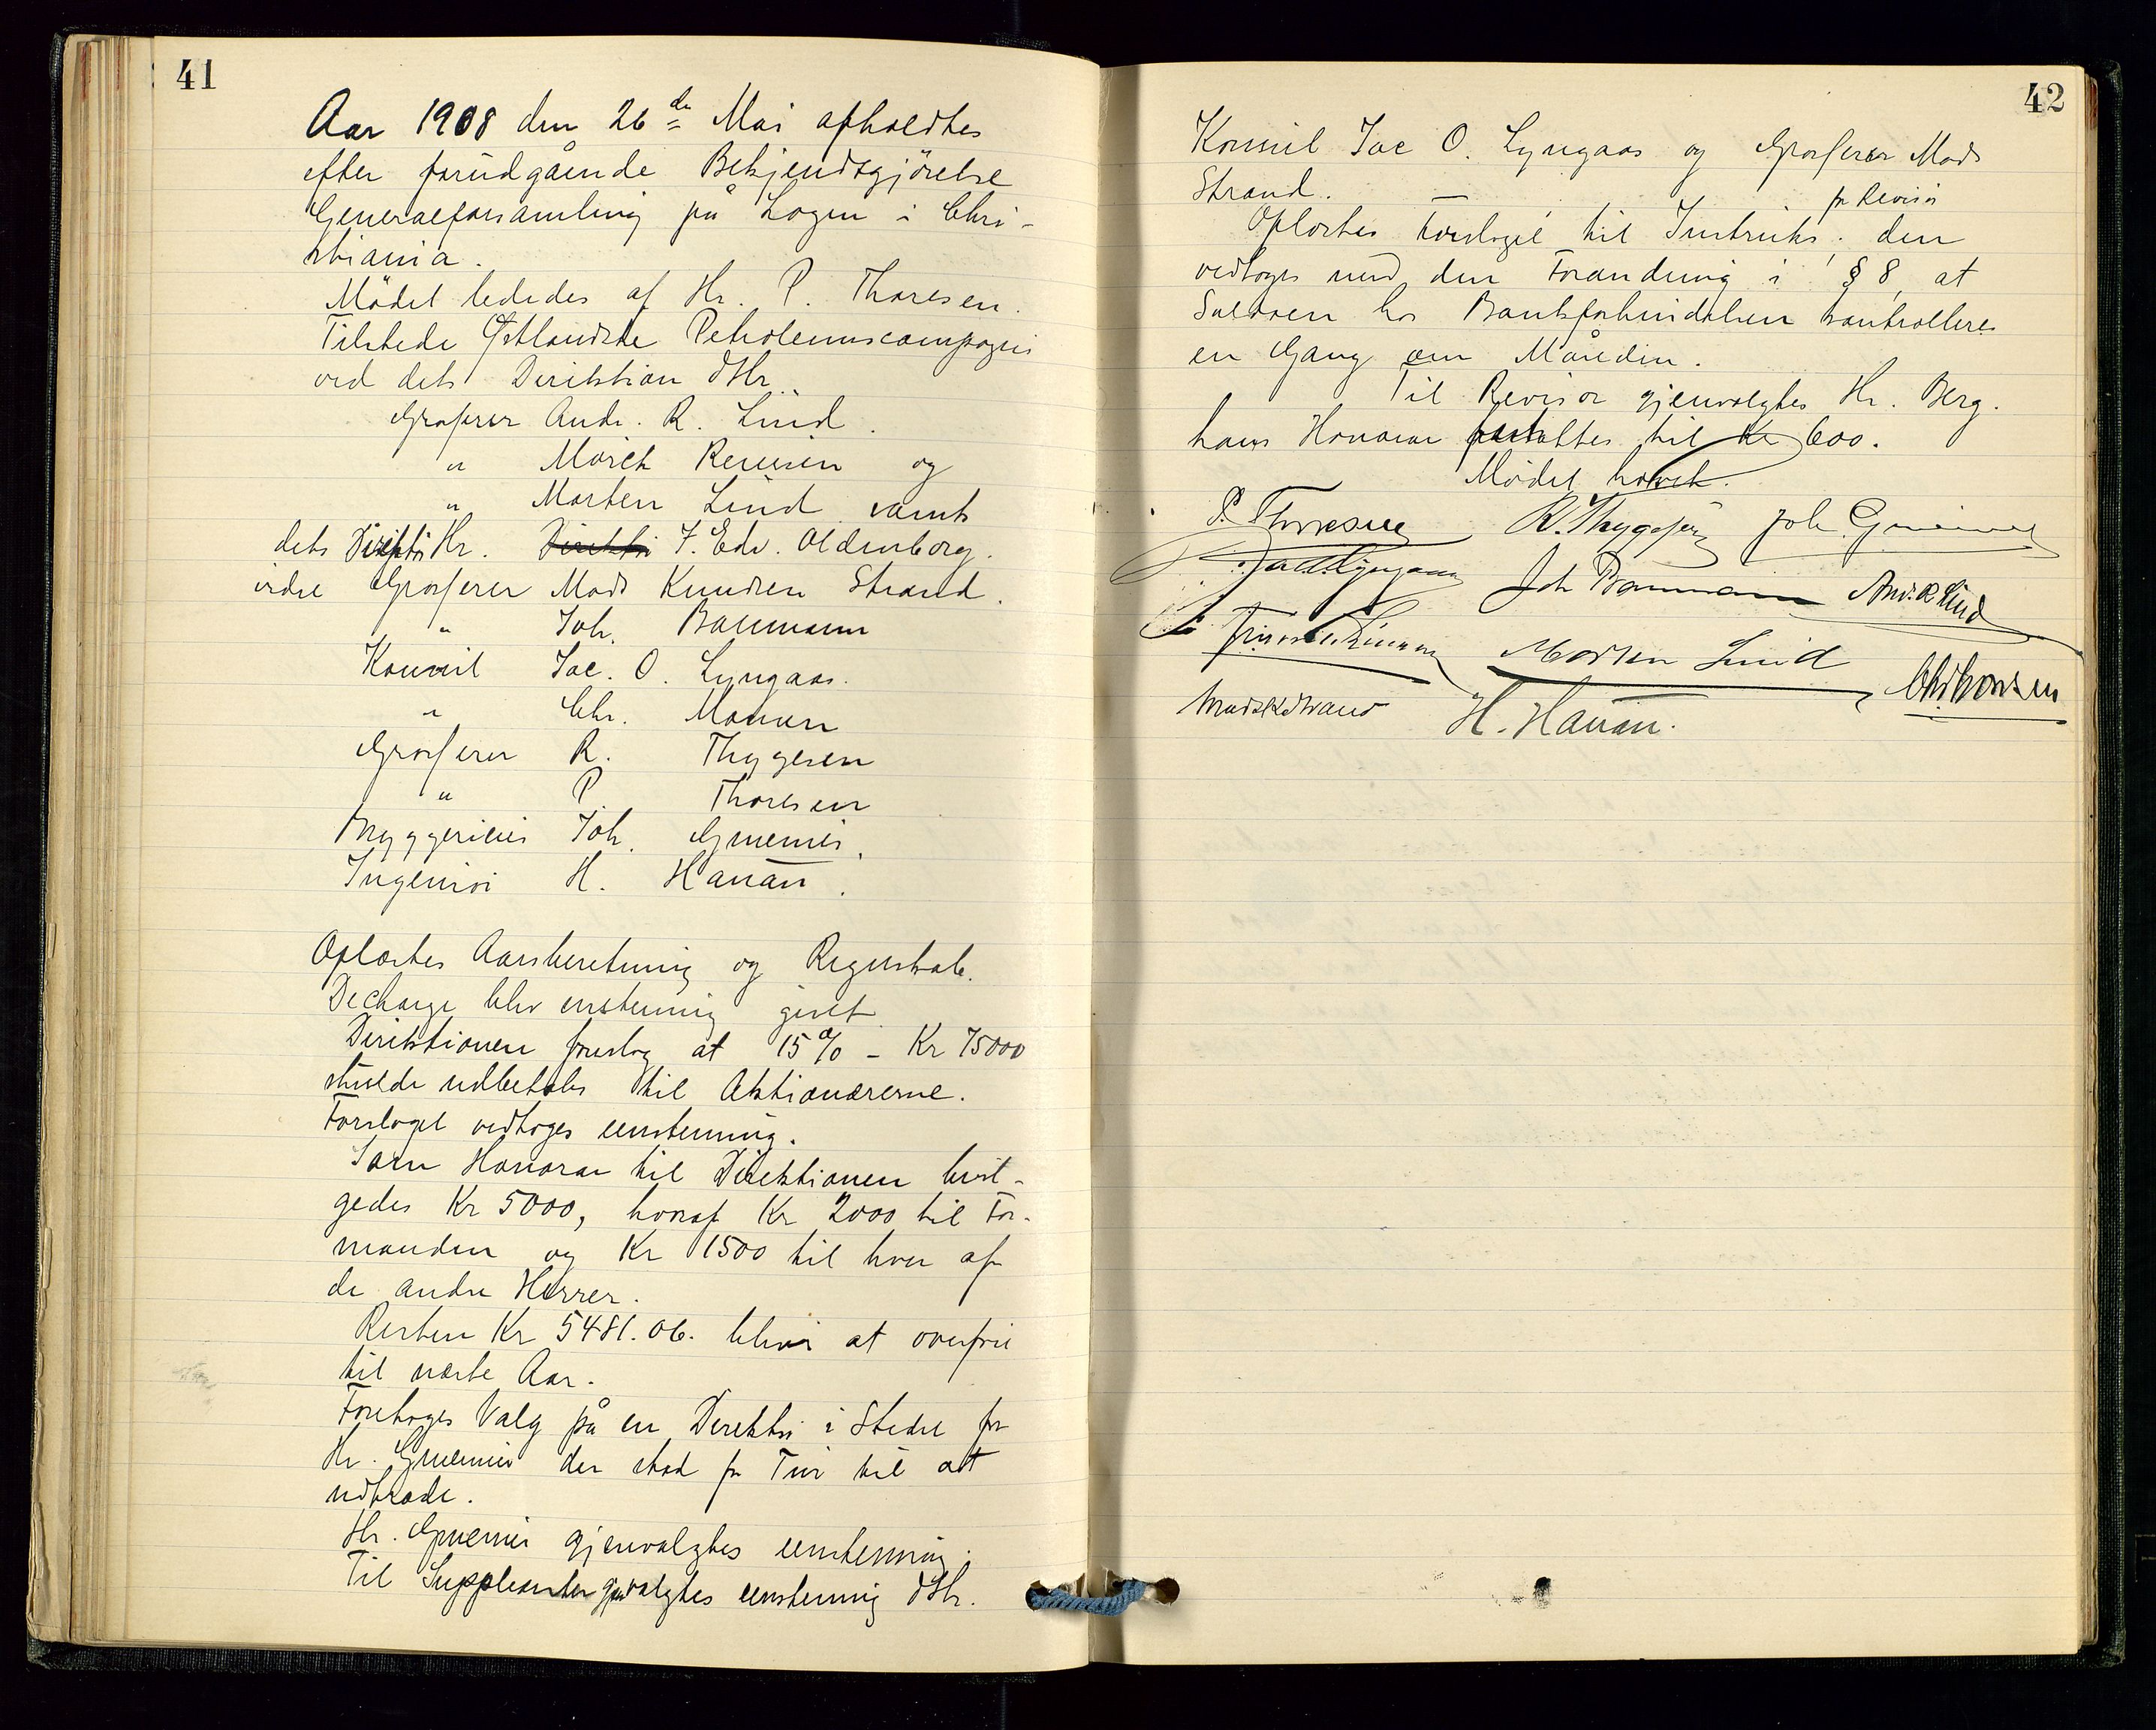 41
Aar 1908 den 26de Mai afholdtes
efter forudgående Bekjendtgjörelse
Generalforsamling på Logen i Chri-
stiania.
Mödet lededes af Hr. P. Thoresen.
Tilstede Østlandske Petroleumscompagni
ved dets Direktion dHr.
Grosserer Andr. R. Lind.
" Mörch Reiersen og
" Morten Lind samt
dets Direktör Hr. Direktör F. Edv. Oldenborg.
videre Grosserer Mads Knudsen Strand.
" Joh. Baumann
Konsul Jac. O. Lyngaas.
" Chr. Monsen
Grosserer R. Thygesen
" P. Thoresen
Bryggerieier Joh. Gmeiner.
Ingeniör H. Hauan.
Oplæstes Aarsberetning og Regnskab.
Decharge blev enstemmig givet.
Direktionen foreslog at 15% - Kr 75000
skulde udbetales til Aktionærerne.
Forslaget vedtoges eenstemmig.
Som Honorar til Direktionen bevil-
gedes Kr 5000, hvoraf Kr 2000 til For-
manden og Kr 1500 til hver af
de andre Herrer.
Resten Kr 5481.06. bliver at overföre
til næste Aar.
Foretoges Valg på en Direktör i Stedet for
Hr. Gmeiner der stod for Tur til at
udtræde.
Hr. Gmeiner gjenvalgtes eenstemmig.
Til Suppleanter gjenvalgtes eenstemmig dHr.
42
Konsul Jac O. Lyngaas og Grosserer Mads
Strand.
for Revisor
Oplæstes Forslaget til Instruks, den
vedtoges med den Forandring i § 8, at
Saldoen hos Bankforbindelsen kontrolleres
en Gang om Måneden.
Til Revisor gjenvalgtes Hr. Berg.
hans Honorar fastsattes til Kr 600.
Mödet hævet.
P. Thoresen R. Thygesen Joh. Gmeiner
Jac O. Lyngaas Joh Baumann And. R Lind
Morten Lind Chr. Monsen
Mads K Strand H. Hauan.